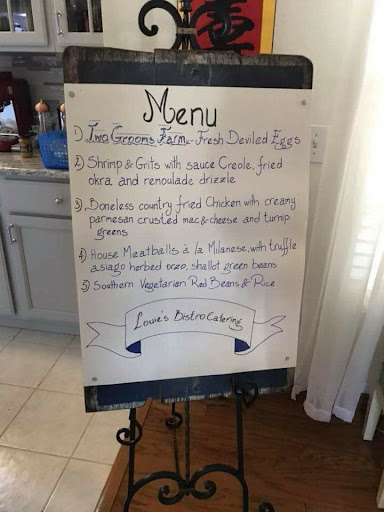 Menu
1) Two Grooms Farm - Fresh Deviled Eggs
2) Shrimp & Grits with sauce Creole, fried
okra and remoulade drizzle
3) Boneless country fried Chicken with creamy
parmesan crusted mac & cheese and turnip
greens
4) House Meatballs à la Milanese, with truffle
asiago herbed orzo, shallot green beans
5) Southern Vegetarian Red Beans & Rice
Louie's Bistro Catering